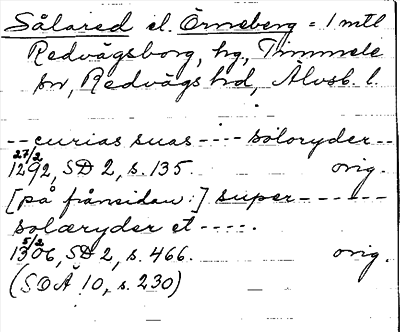 Sålared el. Örneberg = 1 mtl
Redvägsborg, hg, Timmele
sn, Redvägs hd, Älvsb. l.
-- curias suas ---- soloryder --
27/2 1292, SD 2, s. 135. orig.
[på frånsidan:] super ------
solæryder et ----.
5/2 1306, SD 2, s. 466. orig.
(SOÄ 10, s. 230)